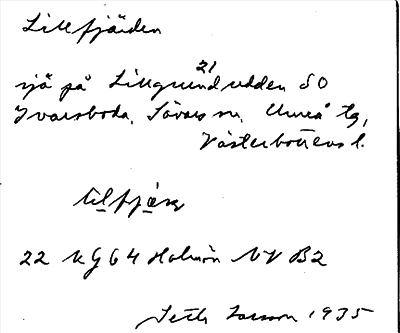 Lillfjärden
21
sjö på Lillgrundudden SO
Ivarsboda, Sävars sn, Umeå tg,
Västerbottens l.
22 KG 64 Holmön NV B2
Seth Larsson 1935